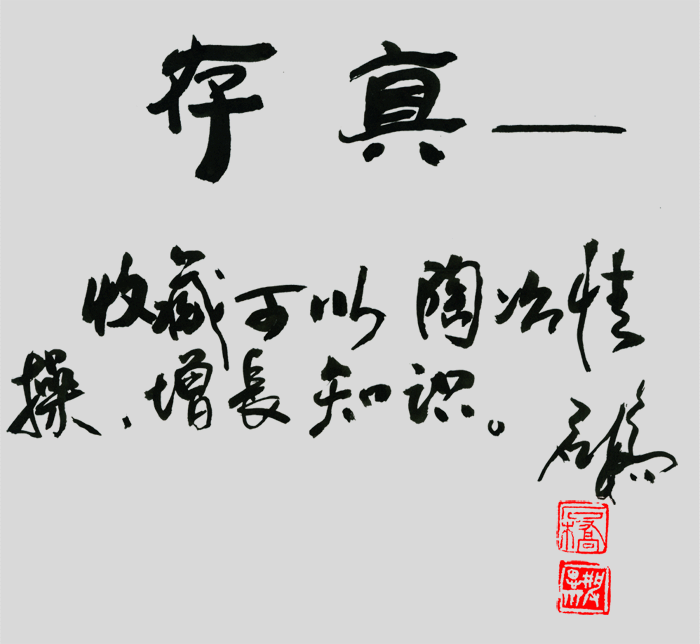 存真—
收藏可以陶冶情
操,增長知识。